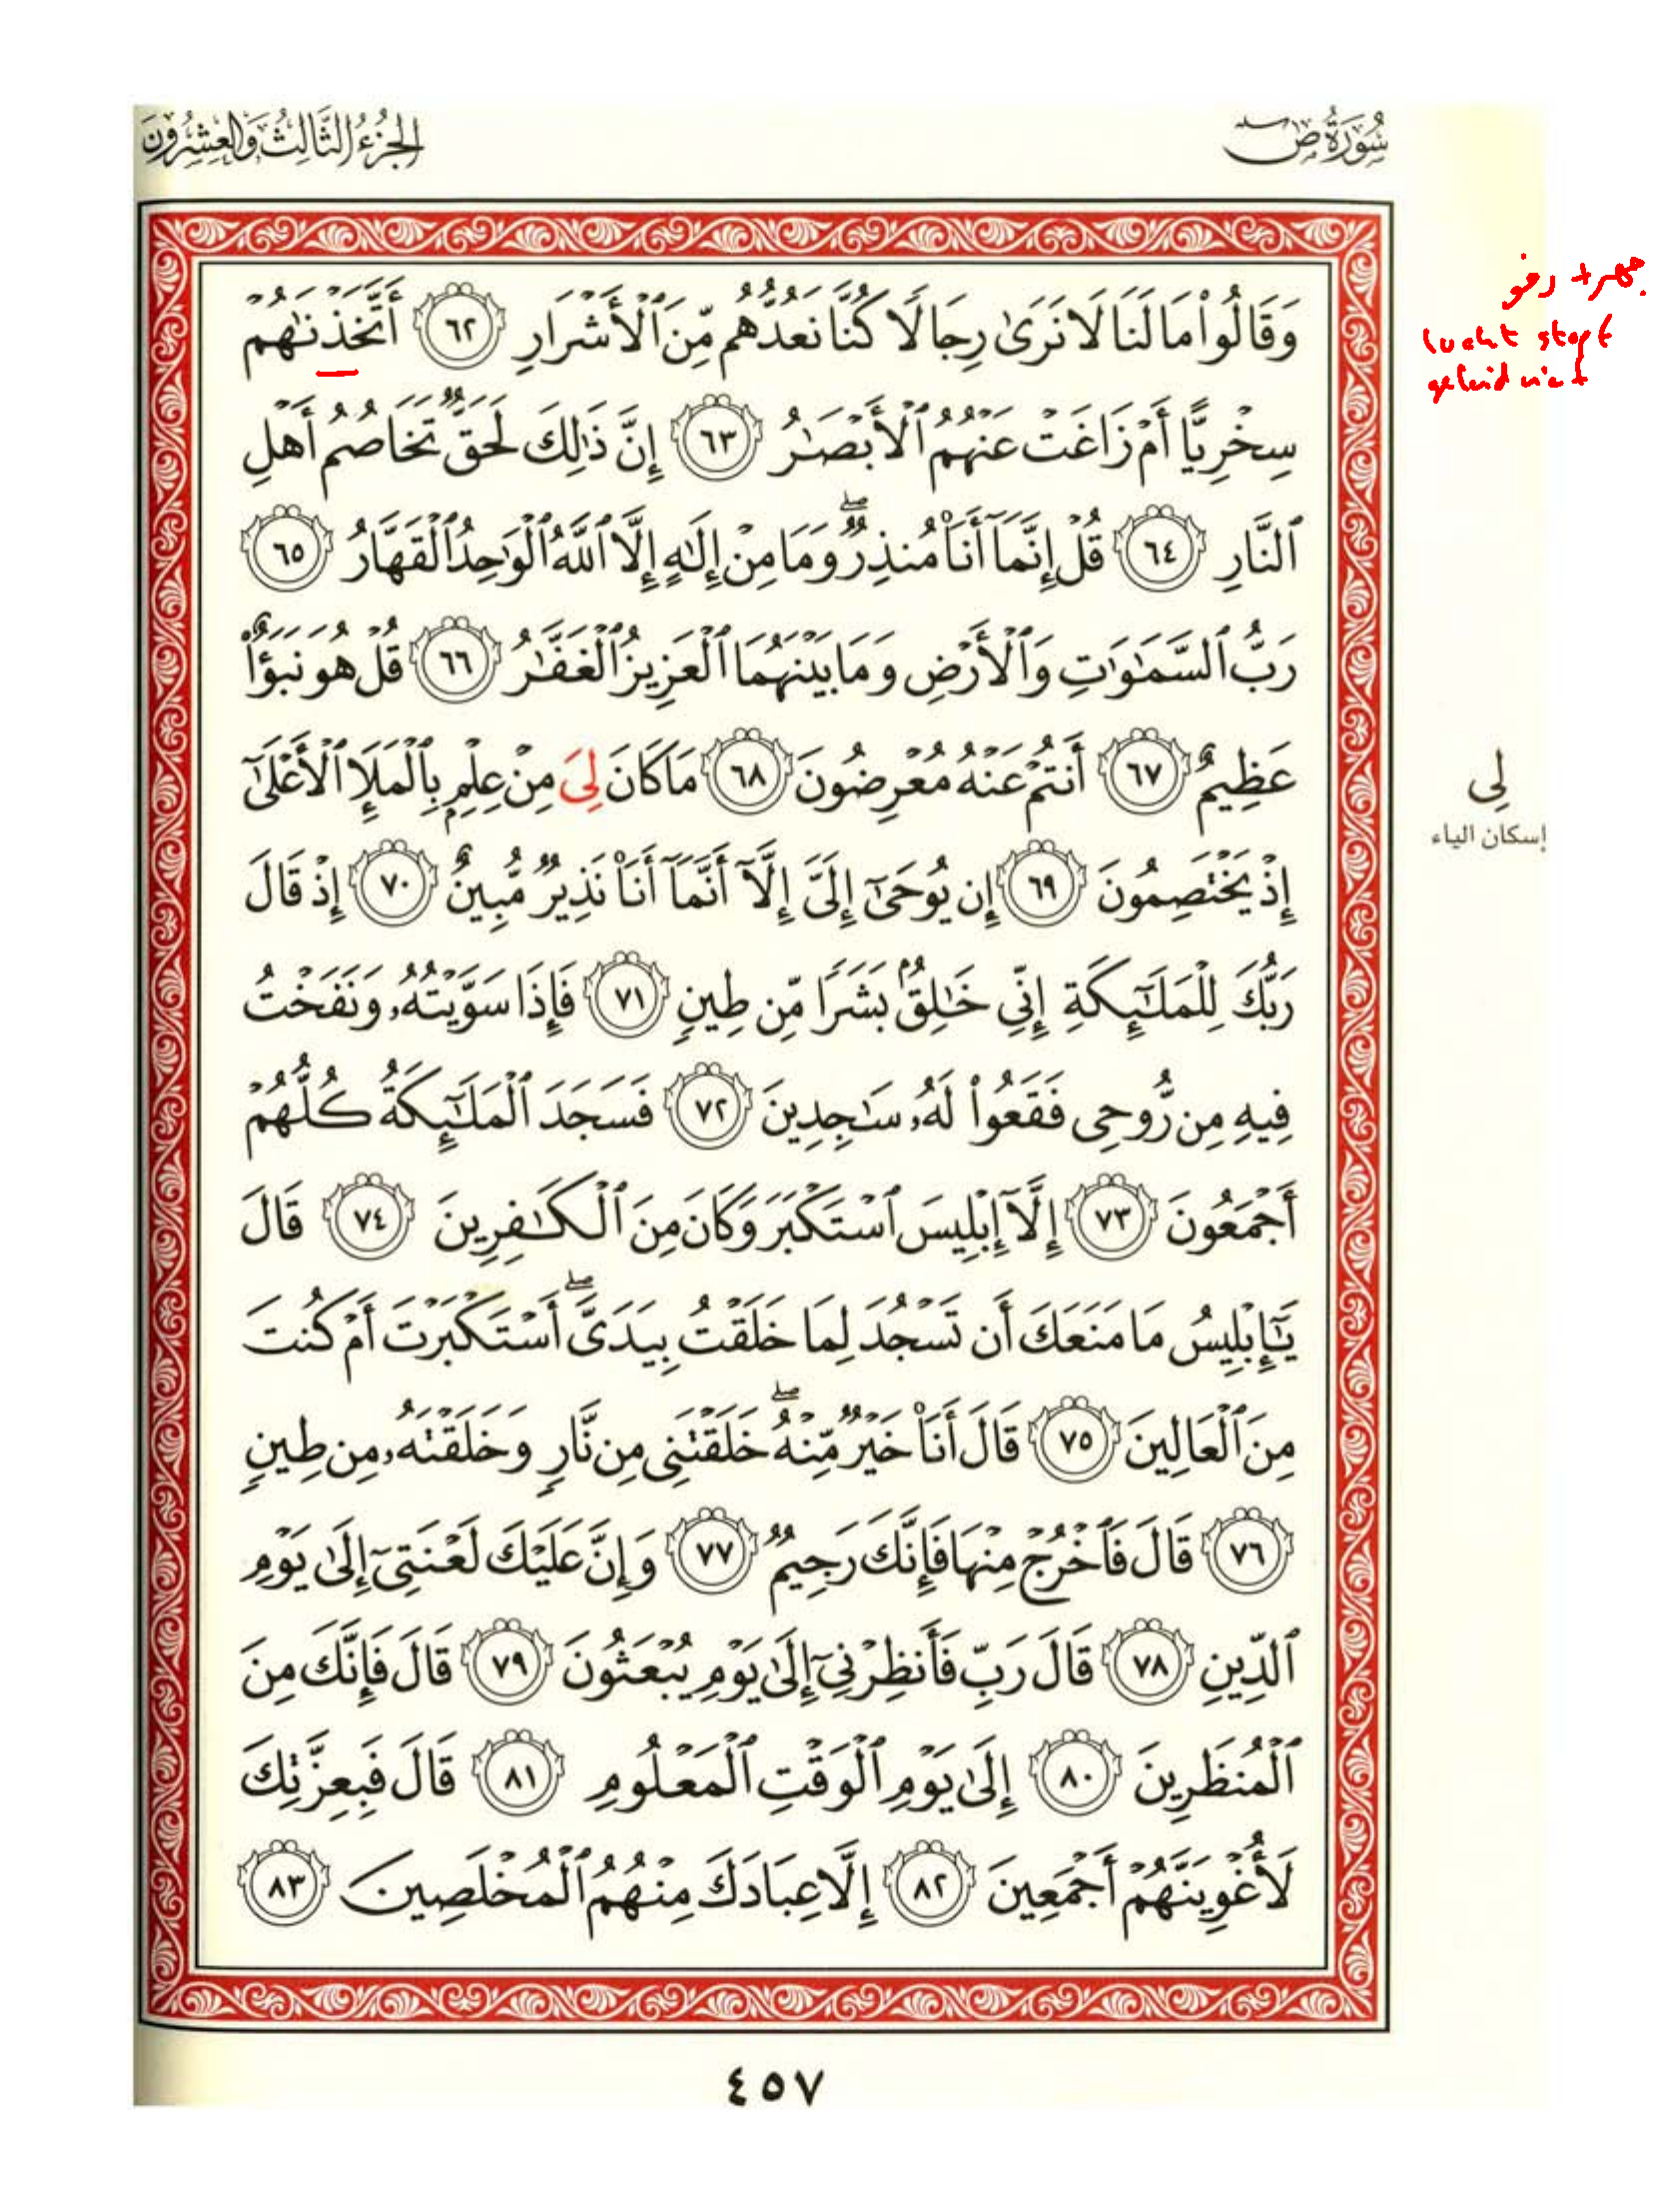 سُورَةُ ص
الجُزْءُ الثَّالِثُ وَالعِشْرُونَ
وَقَالُواْ مَا لَنَا لَا نَرَىٰ رِجَالًا كُنَّا نَعُدُّهُم مِّنَ ٱلْأَشْرَارِ ٦٢ أَتَّخَذْنَٰهُمْ
سِخْرِيًّا أَمْ زَاغَتْ عَنْهُمُ ٱلْأَبْصَٰرُ ٦٣ إِنَّ ذَٰلِكَ لَحَقٌّ تَخَاصُمُ أَهْلِ
ٱلنَّارِ ٦٤ قُلْ إِنَّمَآ أَنَا۠ مُنذِرٌۖ وَمَا مِنْ إِلَٰهٍ إِلَّا ٱللَّهُ ٱلْوَٰحِدُ ٱلْقَهَّارُ ٦٥
رَبُّ ٱلسَّمَٰوَٰتِ وَٱلْأَرْضِ وَمَا بَيْنَهُمَا ٱلْعَزِيزُ ٱلْغَفَّٰرُ ٦٦ قُلْ هُوَ نَبَؤٌاْ
عَظِيمٌ ٦٧ أَنتُمْ عَنْهُ مُعْرِضُونَ ٦٨ مَا كَانَ لِىَ مِنْ عِلْمٍ بِٱلْمَلَإِ ٱلْأَعْلَىٰٓ
إِذْ يَخْتَصِمُونَ ٦٩ إِن يُوحَىٰٓ إِلَىَّ إِلَّآ أَنَّمَآ أَنَا۠ نَذِيرٌ مُّبِينٌ ٧٠ إِذْ قَالَ
رَبُّكَ لِلْمَلَٰٓئِكَةِ إِنِّي خَٰلِقٌۢ بَشَرًا مِّن طِينٍ ٧١ فَإِذَا سَوَّيْتُهُۥ وَنَفَخْتُ
فِيهِ مِن رُّوحِى فَقَعُواْ لَهُۥ سَٰجِدِينَ ٧٢ فَسَجَدَ ٱلْمَلَٰٓئِكَةُ كُلُّهُمْ
أَجْمَعُونَ ٧٣ إِلَّآ إِبْلِيسَ ٱسْتَكْبَرَ وَكَانَ مِنَ ٱلْكَٰفِرِينَ ٧٤ قَالَ
يَٰٓإِبْلِيسُ مَا مَنَعَكَ أَن تَسْجُدَ لِمَا خَلَقْتُ بِيَدَىَّۖ أَسْتَكْبَرْتَ أَمْ كُنتَ
مِنَ ٱلْعَالِينَ ٧٥ قَالَ أَنَا۠ خَيْرٌ مِّنْهُۖ خَلَقْتَنِى مِن نَّارٍ وَخَلَقْتَهُۥ مِن طِينٍ
٧٦ قَالَ فَٱخْرُجْ مِنْهَا فَإِنَّكَ رَجِيمٌ ٧٧ وَإِنَّ عَلَيْكَ لَعْنَتِىٓ إِلَىٰ يَوْمِ
ٱلدِّينِ ٧٨ قَالَ رَبِّ فَأَنظِرْنِىٓ إِلَىٰ يَوْمِ يُبْعَثُونَ ٧٩ قَالَ فَإِنَّكَ مِنَ
ٱلْمُنظَرِينَ ٨٠ إِلَىٰ يَوْمِ ٱلْوَقْتِ ٱلْمَعْلُومِ ٨١ قَالَ فَبِعِزَّتِكَ
لَأُغْوِيَنَّهُمْ أَجْمَعِينَ ٨٢ إِلَّا عِبَادَكَ مِنْهُمُ ٱلْمُخْلَصِينَ ٨٣
جهر + رخو
lucht stopt
geluid niet
لِى
إسكان الياء
٤٥٧